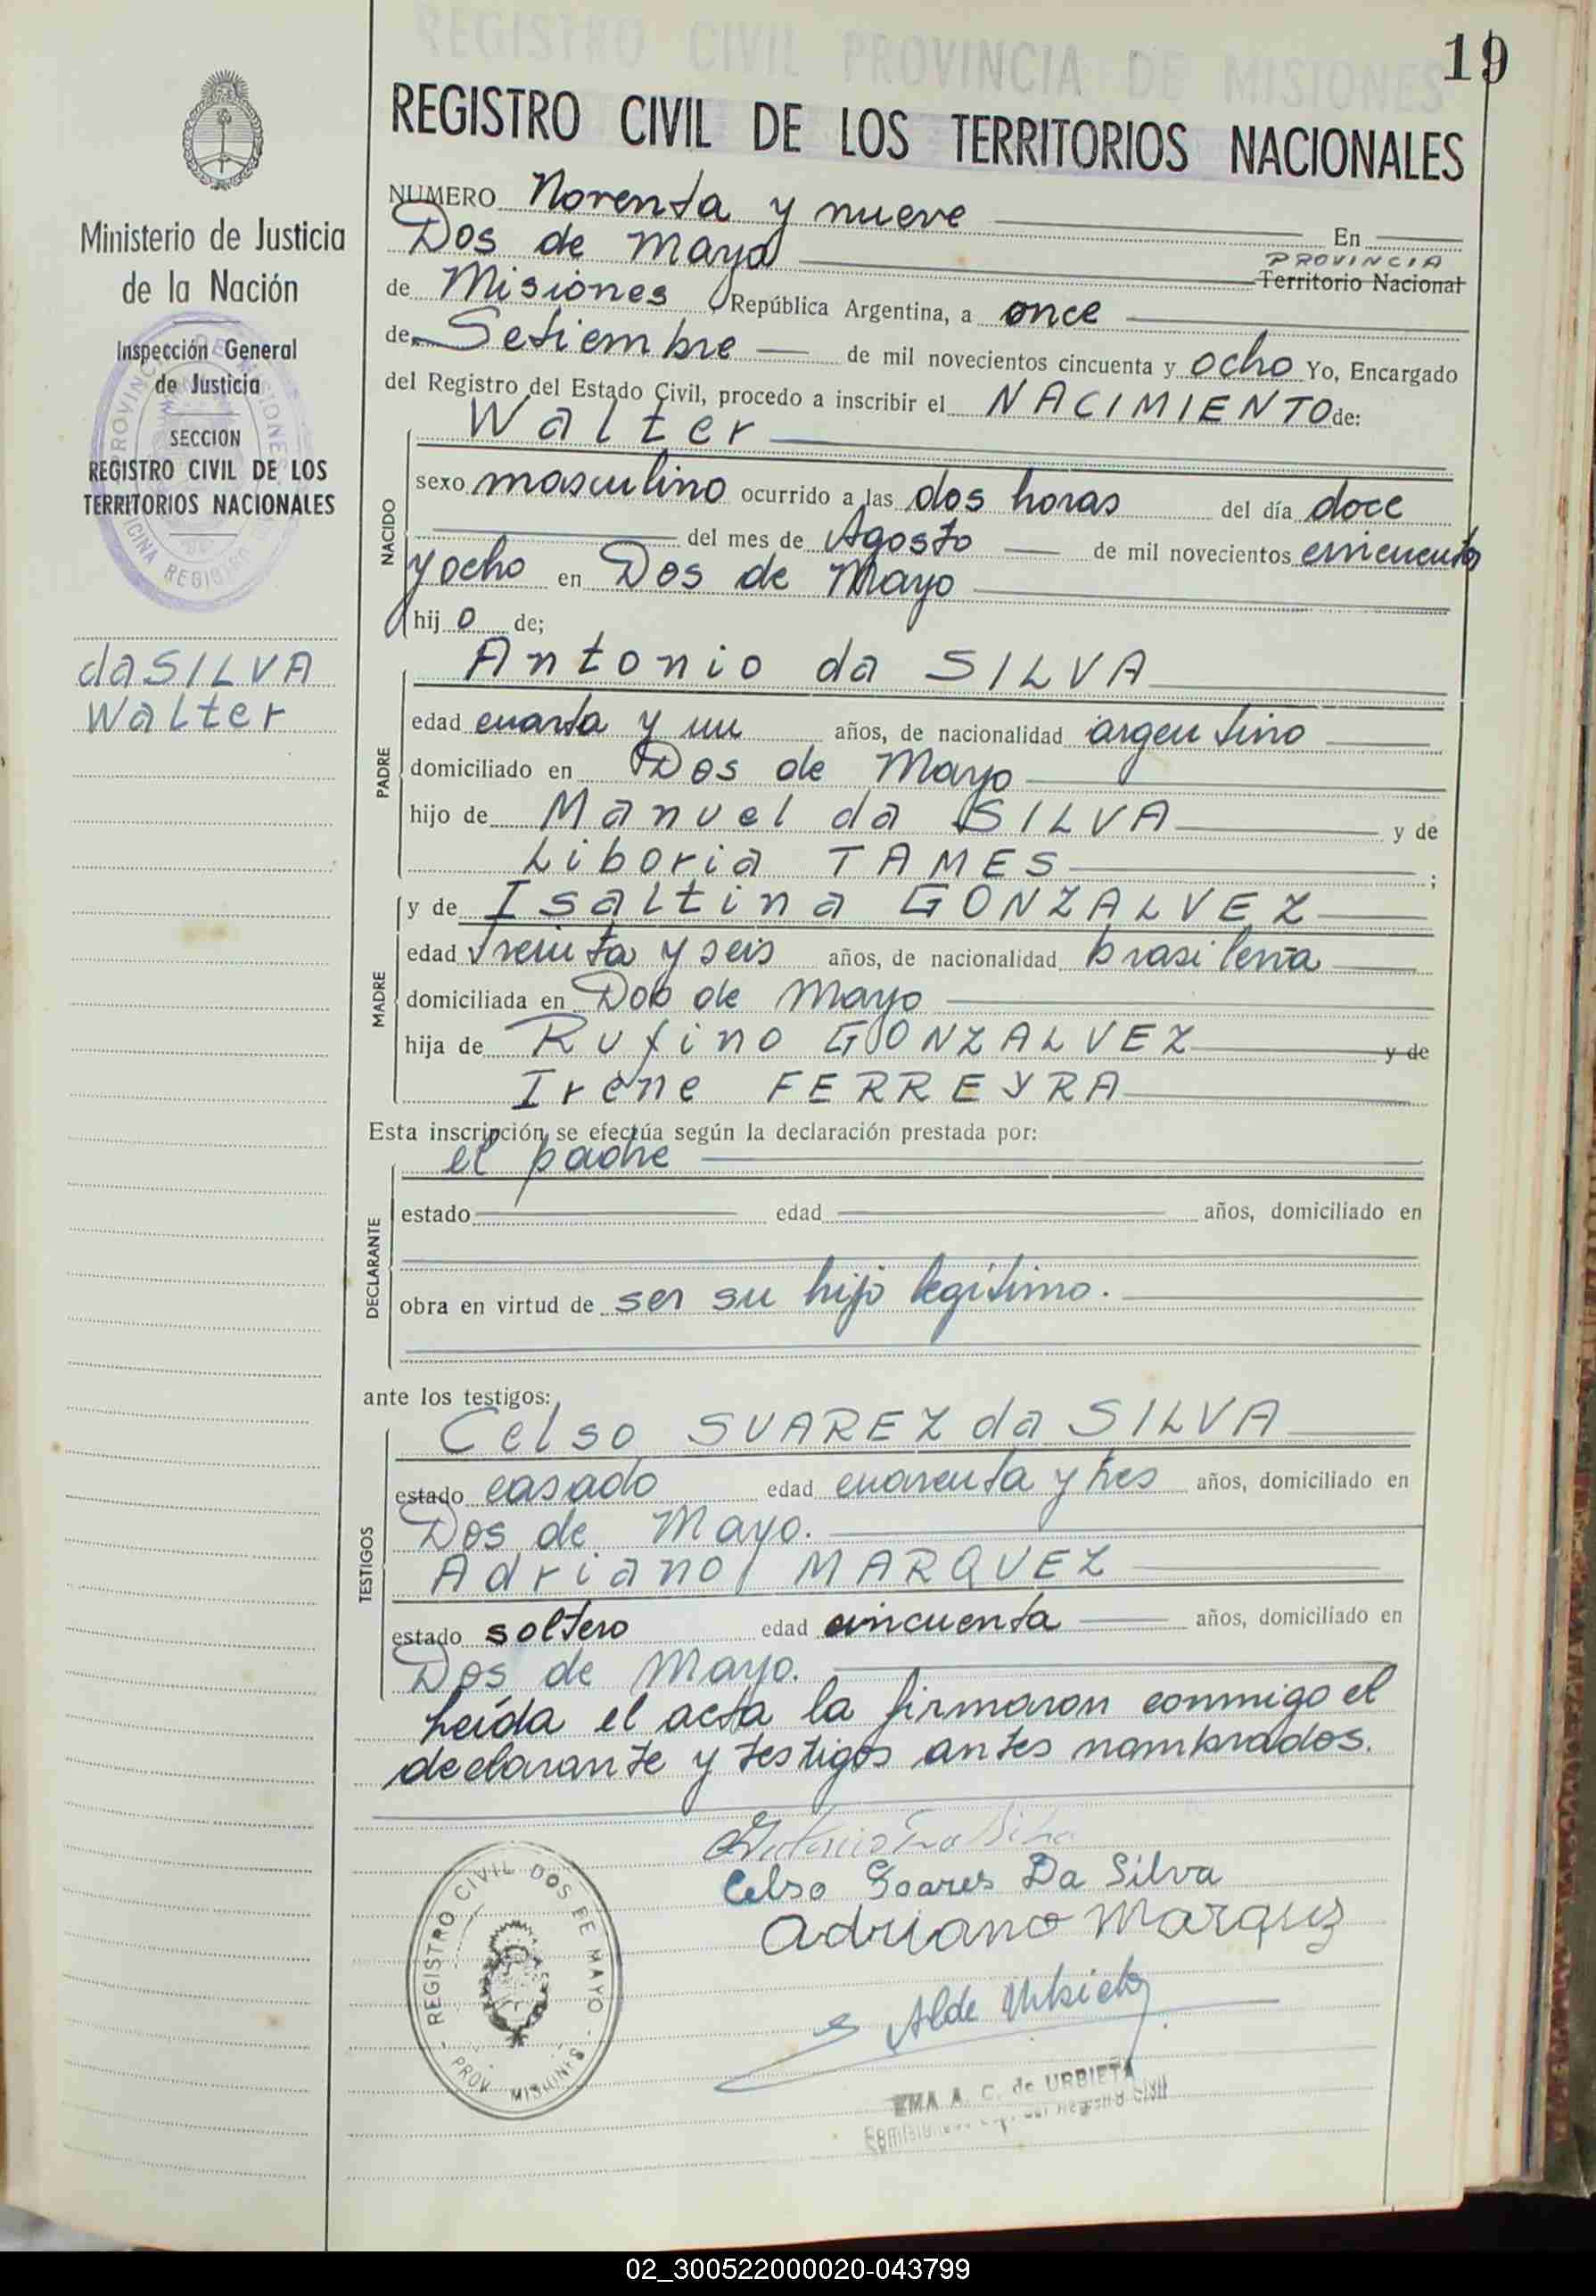 REGISTRO CIVIL PROVINCIA DE MISIONES
19
REGISTRO CIVIL DE LOS TERRITORIOS NACIONALES
Ministerio de Justicia
de la Nación
Inspección General
de Justicia
SECCION
REGISTRO CIVIL DE LOS
TERRITORIOS NACIONALES
da SILVA
Walter
NUMERO Noventa y nueve En
Dos de Mayo
PROVINCIA
Territorio Nacional
de Misiones República Argentina, a once
de Setiembre de mil novecientos cincuenta y ocho Yo, Encargado
del Registro del Estado Civil, procedo a inscribir el NACIMIENTO de:
Walter
NACIDO
sexo masculino ocurrido a las dos horas del día doce
del mes de Agosto de mil novecientos cincuenta
y ocho en Dos de Mayo
hijo de;
Antonio da SILVA
PADRE
edad cuarta y un años, de nacionalidad argentino
domiciliado en Dos de Mayo
hijo de Manuel da SILVA y de
Liboria TAMES ;
y de Isaltina GONZALVEZ
MADRE
edad treinta y seis años, de nacionalidad brasileña
domiciliada en Dos de Mayo
hija de Rufino GONZALVEZ y de
Irene FERREYRA
Esta inscripción se efectúa según la declaración prestada por:
el padre
DECLARANTE
estado edad años, domiciliado en
obra en virtud de ser su hijo legítimo.
ante los testigos:
Celso SUAREZ da SILVA
TESTIGOS
estado casado edad cuarenta y tres años, domiciliado en
Dos de Mayo.
Adriano MARQUEZ
estado soltero edad cincuenta años, domiciliado en
Dos de Mayo.
Leída el acta la firmaron conmigo el
declarante y testigos antes nombrados.
Celso Soares Da Silva
Adriano Marquz
REGISTRO CIVIL DOS DE MAYO
PROV. MISIONES
EMA A. C. de URBIETA
02_300522000020-043799